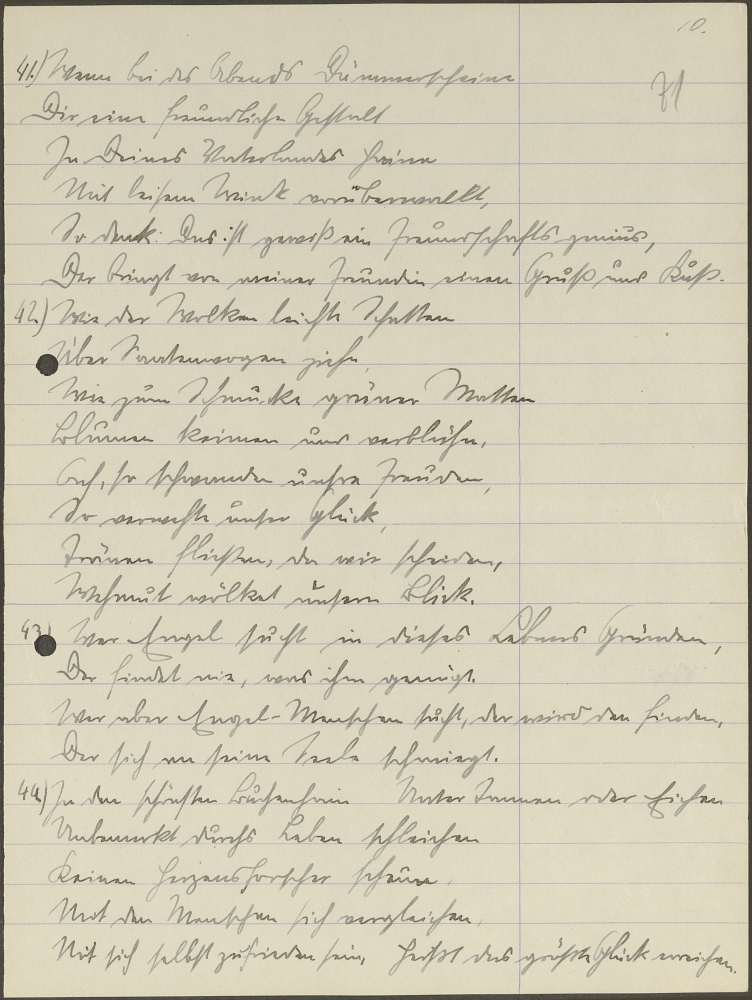 10.
71
41.) Wenn bei des Abends Dämmerscheine
Dir eine freundliche Gestalt
In Deines Vaterlandes Haine
Mit leisem Wink vorüberwallt,
So denk: Das ist gewiß ein Freundschaftsgenius,
Der bringt von meiner Freundin einen Gruß und Kuß.
42.) Wie der Wolken leichte Schatten
Über Saatenwogen ziehn,
Wie zum Schmucke grüner Matten
Blumen keimen und verblühn,
Ach, so schwanden unsre Freuden,
So verwehte unser Glück,
Tränen fließen, da wir scheiden,
Wehmut wölket unsern Blick.
43.) Wer Engel sucht in dieses Lebens Gründen,
Der findet nie, was ihm genügt.
Wer aber Engel-Menschen sucht, der wird den finden,
Der sich an seine Seele schmiegt.
44.) In den schönsten Buchenhain Unter Tannen oder Eichen
Unbemerkt durchs Leben schleichen
Keinen Herzensforscher scheun,
Mit den Menschen sich vergleichen,
Mit sich selbst zufrieden sein, heißt das größte Glück erreichen.